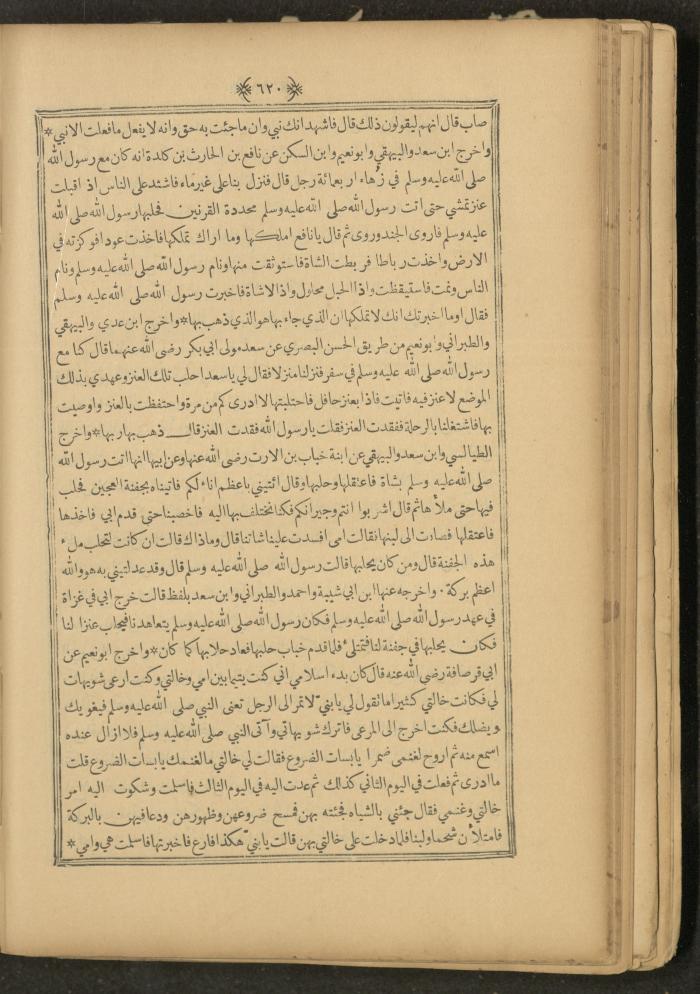 ٦٢٠
صاب قال انهم ليقولون ذلك قال فاشهد انك نبي وان ماجئت به حق وانه لا يفعل ما فعلت الا نبي *
واخرج ابن سعد والبيهقي وابونعيم وابن السكن عن نافع بن الحارث بن كلدة انه كان مع رسول الله
صلى الله عليه وسلم في زهاء اربعمائة رجل قال فنزل بنا على غير ماء فاشتد على الناس اذ اقبلت
عنز تمشي حتى اتت رسول الله صلى الله عليه وسلم محددة القرنين فحلبها رسول الله صلى الله
عليه وسلم فاروى الجند وروى ثم قال يا نافع املكها وما اراك تملكها فاخذت عودا فوكزته في
الارض واخذت رباطا فربطت الشاة فاستوثقت منها ونام رسول الله صلى الله عليه وسلم ونام
الناس ونمت فاستيقظت واذا الحبل محلول واذا لا شاة فاخبرت رسول الله صلى الله عليه وسلم
فقال اوما اخبرتك انك لا تملكها ان الذي جاء بها هو الذي ذهب بها * واخرج ابن عدي والبيهقي
والطبراني وابونعيم من طريق الحسن البصري عن سعد مولى ابي بكر رضى الله عنهما قال كنا مع
رسول الله صلى الله عليه وسلم في سفر فنزلنا منزلا فقال لي يا سعد احلب تلك العنز وعهدي بذلك
الموضع لا عنز فيه فاتيت فاذا بعنز حافل فاحتلبتها لا ادرى كم من مرة واحتفظت بالعنز واوصيت
بها فاشتغلنا بالرحلة ففقدت العنز فقلت يا رسول الله فقدت العنز قال ذهب بها ربها * واخرج
الطيالسي وابن سعد والبيهقي عن ابنة خباب بن الارت رضى الله عنها وعن ابيها انها اتت رسول الله
صلى الله عليه وسلم بشاة فاعتقلها وحلبها وقال ائتيني باعظم اناء لكم فاتيناه بجفنة العجين فحلب
فيها حتى ملأها ثم قال اشربوا انتم وجيرانكم فكنا نختلف بها اليه فاخصبنا حتى قدم ابي فاخذها
فاعتقلها فصارت الى لبنها فقالت امى افسدت علينا شاتنا قال وما ذاك قالت ان كانت لتحلب ملء
هذه الجفنة قال ومن كان يحلبها قالت رسول الله صلى الله عليه وسلم قال وقد عدلتيني به هو والله
اعظم بركة . واخرجه عنها ابن ابي شيبة واحمد والطبراني وابن سعد بلفظ قالت خرج ابي في غزاة
في عهد رسول الله صلى الله عليه وسلم فكان رسول الله صلى الله عليه وسلم يتعاهدنا فيحلب عنزا لنا
فكان يحلبها في جفنة لنا فتمتلىء فلما قدم خباب حلبها فعاد حلابها كما كان * واخرج ابونعيم عن
ابي قرصافة رضى الله عنه قال كان بدء اسلامي اني كنت يتيما بين امي وخالتي وكنت ارعى شويهات
لي فكانت خالتي كثيرا ما تقول لي يا بنيّ لا تمر الى الرجل تعنى النبي صلى الله عليه وسلم فيغويك
ويضلك فكنت اخرج الى المرعى فاترك شويهاتي وآتى النبي صلى الله عليه وسلم فلا ازال عنده
اسمع منه ثم اروح لغنمى ضمرا يابسات الضروع فقالت لي خالتي ما لغنمك يابسات الضروع قلت
ما ادرى ثم فعلت في اليوم الثاني كذلك ثم عدت اليه في اليوم الثالث فاسلمت وشكوت اليه امر
خالتي وغنمي فقال جئني بالشياه فجئته بهن فمسح ضروعهن وظهورهن ودعا فيهن بالبركة
فامتلأن شحما ولبنا فلما دخلت على خالتي بهن قالت يا بنيّ هكذا فارع فاخبرتها فاسلمت هي وامي *